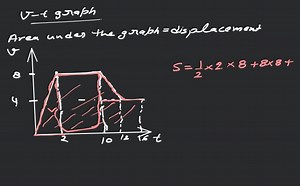 v-t graph
Area under the graph = displacement
v
8
4
2 10 12 15 t
S = 1/2 × 2 × 8 + 8×8 +